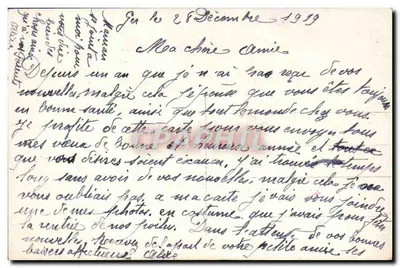 Ger le 28 Décembre 1919
Ma chère amie
Depuis un an que je n ai pas reçu de vos
nouvelles malgré cela je pense que vous êtes toujours
en bonne santé ainsi que tout le monde chez vous.
Je profite de cette carte pour vous envoyer tous
mes vœux de bonne et heureuse année et tout ce
que vous désirez soient exaucés, j'ai trouvé le temps
long sans avoir de vos nouvelles, malgré cela je ne
vous oubliais pas, a ma carte je vais vous joindre
une de mes photos, en costume que j'avais pour
la rentrée de nos poilus. Dans l'attente de vos bonnes
nouvelles, Recevez de la part de votre petite amie, ses
baisers affectueux
Maman
se joint a
moi pour
vous dire
bien des
choses